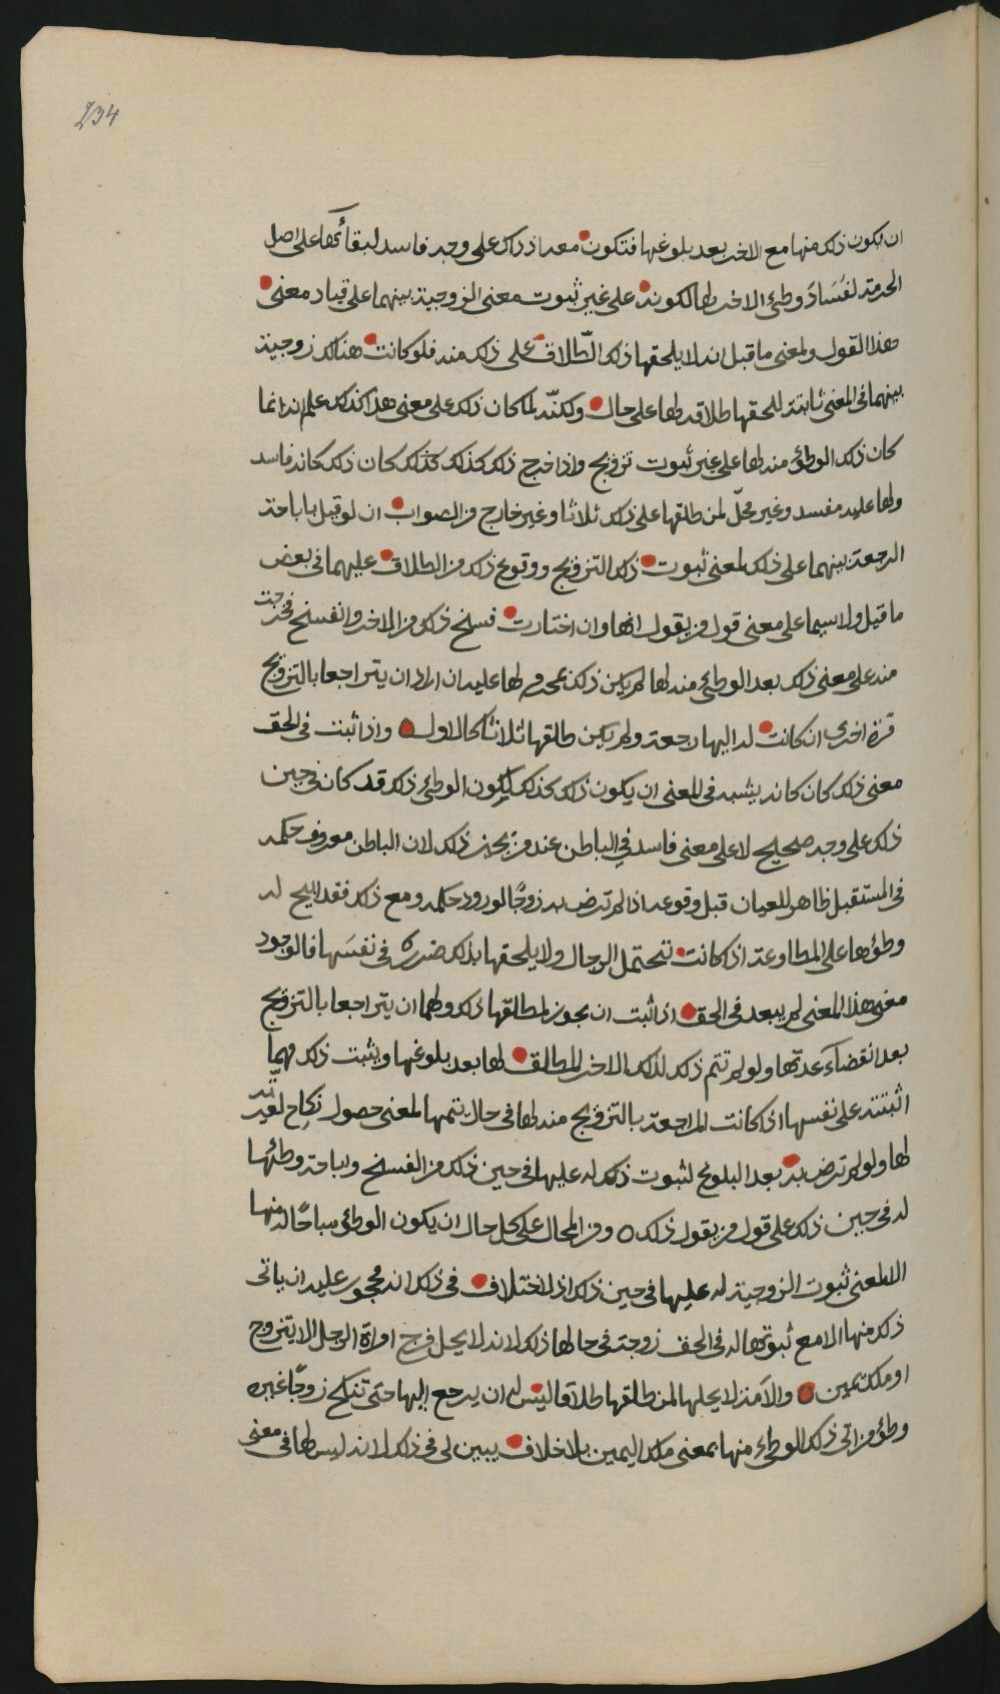 234
ان يكون ذلك منها مع الاخر بعد بلوغها فتكون معه اذ ذاك على وجه فاسد لبقائها على اصل
الحرمة لفساد وطئ الاخر لها لكونه على غير ثبوت معنى الزوجية بينهما على قياد معنى
هذا القول ولمعنى ما قبل انه لا يلحقها ذلك الطّلاق على ذلك منه فلو كانت هنالك زوجية
بينهما في المعنى ثابتة للحقها طلاقه لها على حال ولكنّه لما كان ذلك على معنى هذا كذلك علم انه انما
كان ذلك الوطؤ منه لها على غير ثبوت تزويج واذا خرج ذلك كذلك كذلك كان ذلك كانه فاسد
ولها عليه مفسد وغير محلّ لمن طلقها على ذلك ثلاثا وغير خارج من الصواب ان لو قيل باباحة
الرجعة بينهما على ذلك لمعنى ثبوت ذلك التزويج ووقوع ذلك من الطلاق عليهما في بعض
ما قيل ولا سيما على معنى قول من يقول انها وان اختارت فسخ ذلك من الاخر وانفسخ فخرجت
منه على معنى ذلك بعد الوطئ منه لها لم يكن ذلك بمحرم لها عليه ان اراد ان يتراجعا بالتزويج
مّرة اخرى ان كانت له اليها رجعة ولم يكن طلقها ثلاثا كالاول واذا ثبت في الحق
معنى ذلك كان كانه يشبه في المعنى ان يكون ذلك كذلك لكون الوطئ ذلك قد كان في حين
ذلك على وجه صحيح لا على معنى فاسد في الباطن عند من يجز ذلك لان الباطن معروف حكمه
في المستقبل ظاهر للعيان قبل وقوعه اذا لم ترض به زوجًا لورود حكمه ومع ذلك فقد ابيح له
وطؤها على المطاوعة اذ كانت تحتمل الرجال ولا يلحقها بذلك ضرر في نفسَها فالوجود
معنى هذا المعنى لم يبعد في الحق اذا ثبت ان يجوز لمطالقها ذلك ولهما ان يتراجعا بالتزويج
بعد انقضاء عدتها ولو لم تتم ذلك لذلك الاخر المطالق لها بعد بلوغها ويثبت ذلك مهما
اثبتته على نفسها اذا كانت المراجعة بالتزويج منه لها في حال تتمها لمعنى حصول نكاح لغيره
لها ولو لم ترض به بعد البلوغ لثبوت ذلك له عليها في حين ذلك من الفسخ واباحة وطئها
له في حين ذلك على قول من يقول ذلك ٥ ومن المحال على كل حال ان يكون الوطئ مباحًا له منها
الا لمعنى ثبوت الزوجية له عليها في حين ذلك اذ لا ختلاف في ذلك انه محجور عليه ان ياتى
ذلك منها الا مع ثبوتها له في الحق زوجة في حالها ذلك لانه لا يحل فرج امراة الرجل الا بتزويج
او ملك يمين والامة لا يحلها لمن طلقها طلاقا ليس له ان يرجع إليها حتى تنكح زوجًا غيره
وطؤ من اتى ذلك الوطئ منها بمعنى ملك اليمين بلا خلاف يبين لى في ذلك لانه ليس لها في معنى